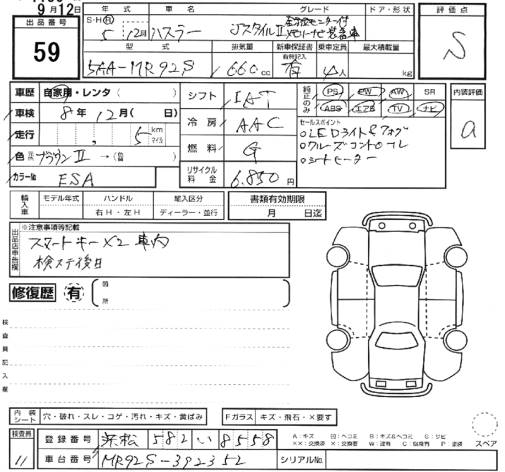 9月12日
出品番号
59
年式 車名 グレード ドア・形状
S・H・R 5年12月 ハスラー JスタイルⅡ
型式 排気量 新車保証書 乗車定員 最大積載量
5AA-MR92S 660cc 有 4人 kg
評価点
S
内装評価
a
車歴 自家用・レンタ( )
車検 8年12月( 日)
走行 5 km マイル
色 ブラウンⅡ→( )
カラーNo ESA
シフト IAT
冷房 AAC
燃料 G
リサイクル料金 6,850円
純正のみ PS PW AW SR
ABS エアB TV ナビ
セールスポイント
○LEDライト&フォグ
○クルーズコントロール
○シートヒーター
輸入車 モデル年式 ハンドル 導入区分
年 右H・左H ディーラー・並行
書類有効期限
月 日迄
出品店申告欄
※注意事項等記載
スマートキー×2 車内
検ステ後日
修復歴 有 箇所
検査員記入欄
内装シート 穴・破れ・スレ・コゲ・汚れ・キズ・黄ばみ
Fガラス キズ・飛石・×要す
検査員 11
登録番号 浜松 582 い 8558
車台番号 MR92S-392352
シリアルNo.
スペア